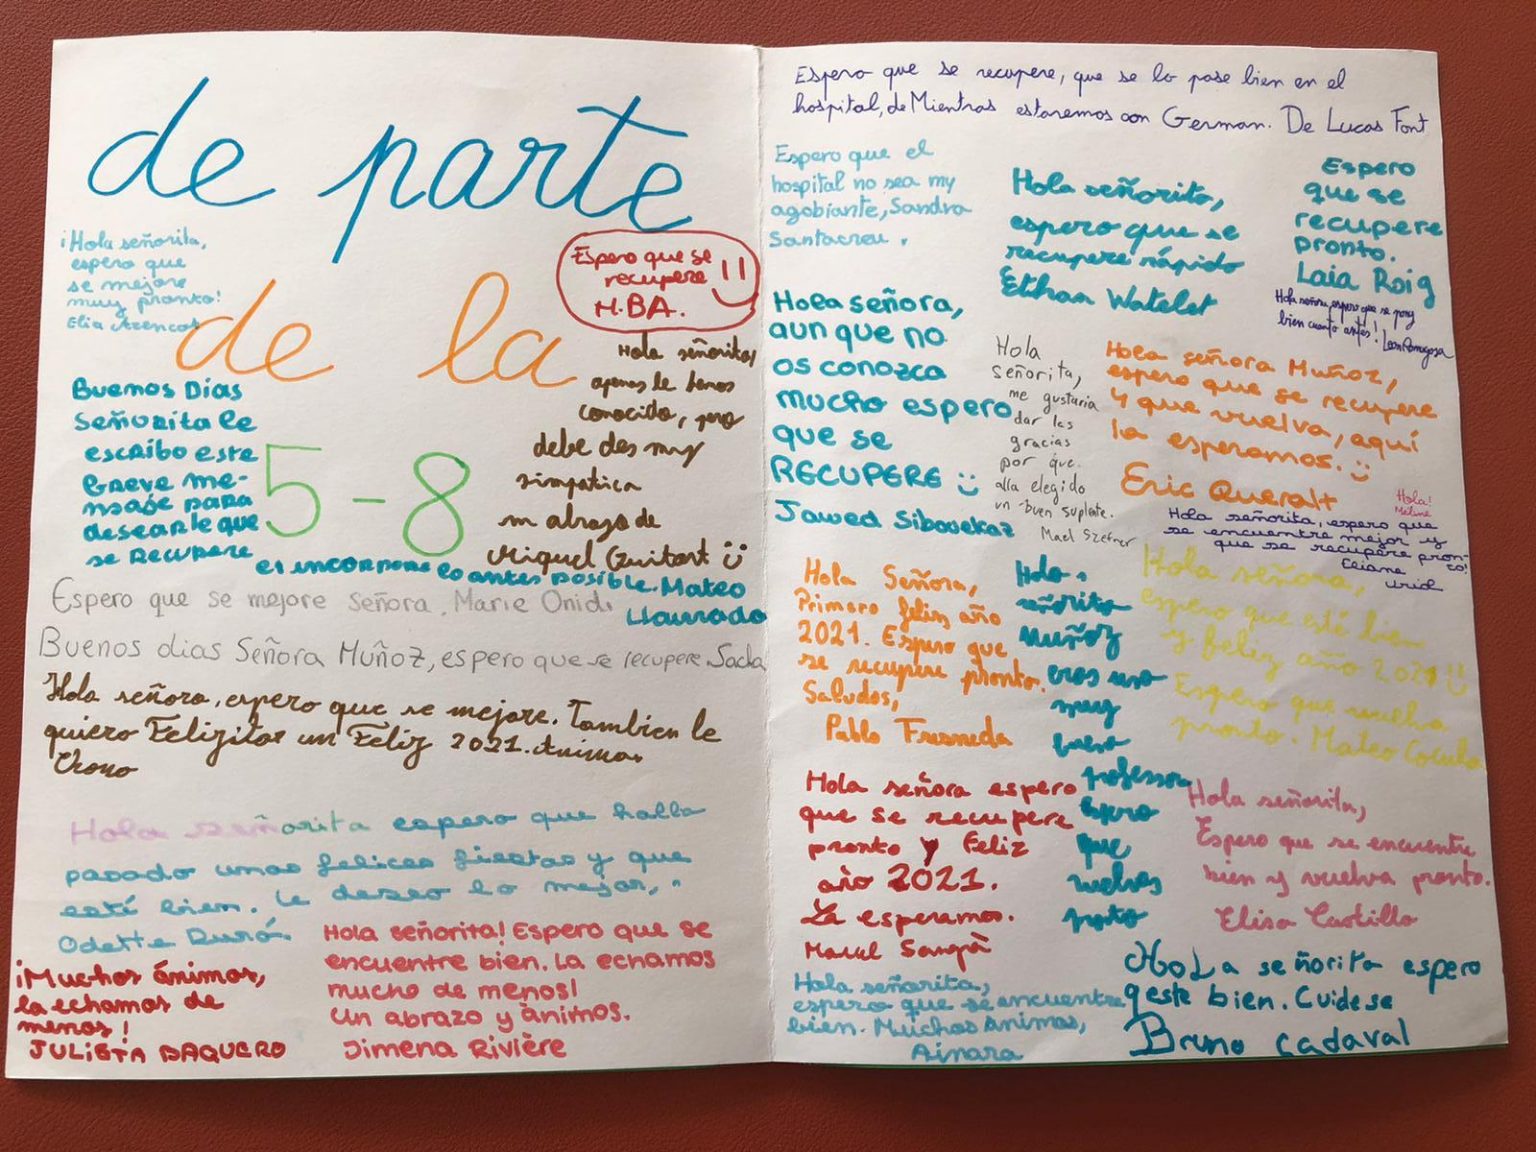 de parte
de la
5-8
¡Hola señorita,
espero que
se mejore
muy pronto!
Elia
Espero que se
recupere
M.BA.
Hola señorita,
apenas le hemos
conocido, pero
debe des muy
simpatica
un abrazo de
Miquel Guitart
Buenos Dias
Señorita le
escribo este
breve me-
nsaje para
desearle que
se Recupere
lo antes posible. Mateo
Llaurado
Espero que se mejore Señora, Marie
Buenos dias Señora Muñoz, espero que se recupere Sacha
Hola señora, espero que se mejore. Tambien le
quiero Felizitar un Feliz 2021.
Hola señorita espero que halla
pasado unas felices fiestas y que
esté bien. Le deseo lo mejor,
Odette Duró
¡Muchos ánimos,
la echamos de
menos!
JULIETA BAQUERO
Hola señorita! Espero que se
encuentre bien. La echamos
mucho de menos!
Un abrazo y ánimos.
Jimena Rivière
Espero que se recupere, que se lo pase bien en el
hospital, de Mientras estaremos con German. De Lucas Font
Espero que el
hospital no sea my
agobiante, Sandra
Santacreu.
Hola señorita,
espero que se
recupere rápido
Ethan Watelet
Espero
que se
recupere
pronto.
Laia Roig
bien cuanto antes!
Hola señora,
aun que no
os conozca
mucho espero
que se
RECUPERE
Jawed
Hola
señorita,
me gustaria
dar las
gracias
por que.
alla elegido
un buen suplente.
Mael Szefner
Hola señora Muñoz,
espero que se recupere
y que vuelva, aquí
la esperamos.
Eric Queralt
Hola!
Meline
Hola señorita, espero que
se encuentre mejor y
que se recupere pron-
to!
Eliana
Hola Señora,
Primero feliz año
2021. Espero que
se recupere pronto.
Saludos,
Pablo Fresneda
Hola
señorita
Muñoz
eras una
muy
buena
professora
espero
que
vuelvas
pronto
Hola señora,
espero que esté bien
y feliz año 2021
Espero que vuelva
pronto. Mateo
Hola señora espero
que se recupere
pronto y Feliz
año 2021.
La esperamos.
Hola señorita,
Espero que se encuentre
bien y vuelva pronto.
Elisa Castillo
Hola señorita,
espero que se encuentre
bien. Muchos animos,
Ainara
Hola señorita espero
q este bien. Cuidese
Bruno Cadaval